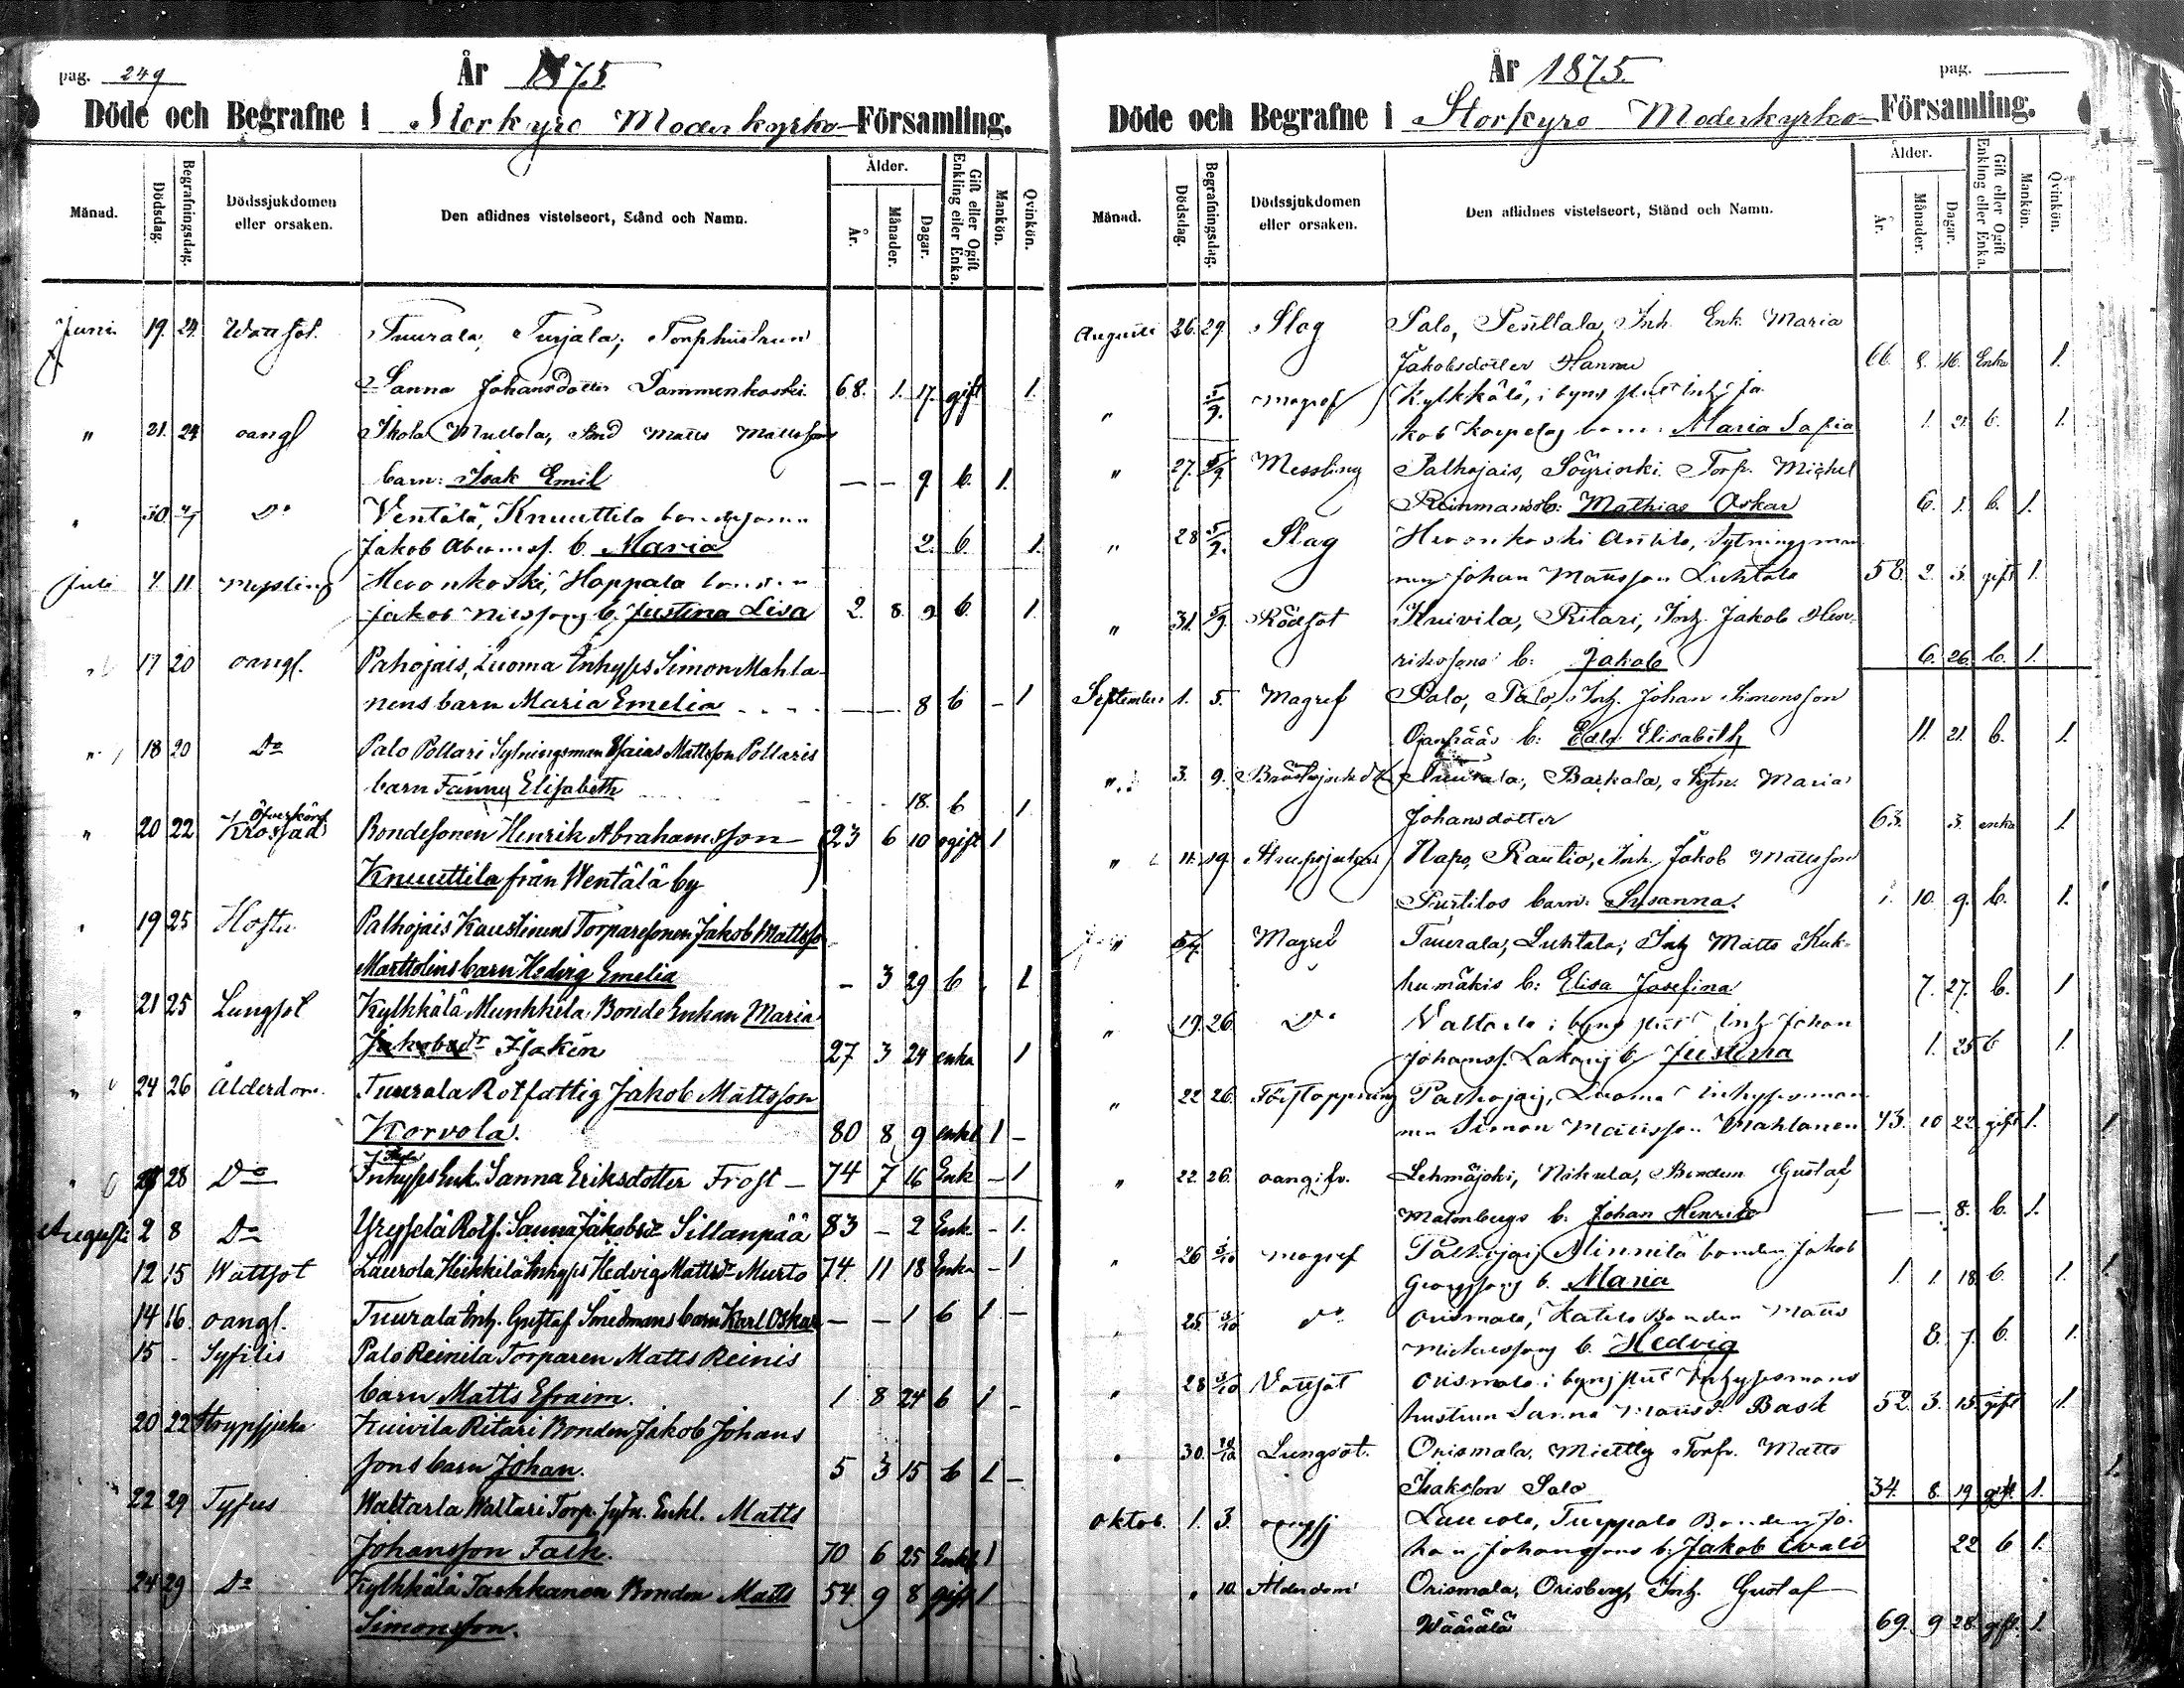 pag. 249
År 1875
Döde och Begrafne i Storkyro Moderkyrko- Församling.
Månad. Dödsdag. Begrafningsdag. Dödssjukdomen eller orsaken. Den aflidnes vistelseort, Stånd och Namn. Ålder. År. Månader. Dagar. Gift eller Ogift Enkling eller Enka. Mankön. Qvinkön.
Juni 19. 24. Wattsot. Tuurala, Turjala, Torphustrun
Sanna Johansdotter Dammenkoski 68. 1. 17. gift 1.
" 21. 24 oangf Ikola Mullola, Matts Mattssons
barn: Isak Emil — — 9. b. 1.
" 30. 4/7 Do Ventälä, Knuuttila bondesonen
Jakob Abramss. b. Maria 2. b. 1.
Juli 7. 11 Messling Hevonkoski, Hoppala bonden
Jakob Nilssons b. Justina Lisa 2. 8. 9 b. 1
" 17 20 oangf. Pahojais, Luoma Inhyses Simon Mahla-
nens barn Maria Emelia — — 8 b — 1
" 18 20 Do Palo Pollari Sytningsman Esaias Mattsson Pollaris
barn Fanny Elisabeth 18. b 1
" 20 22 Öfverkörd Krossad Bondesonen Henrik Abrahamsson 23 6 10 ogift 1
Knuuttila från Wentälä by
" 19 25 Hosta Palhojais Kaustinens Torparesonen Jakob Mattsso
Marttolins barn Hedvig Emelia — 3 29 b 1
" 21 25 Lungsot Kylkkälä Munkkila Bonde Enkan Maria
Jakobsdr Isakin 27 3 24 enka 1
" 24 26 Ålderdom. Tuurala Rotfattig Jakob Mattsson
Korvola. 80 8 9 enkl 1 —
" 28 Do Inhyses Enk. Sanna Eriksdotter Frost — 74 7 16 Enk — 1
Augusti 2 8 Do Rotf. Sanna Jakobsdr Sillanpää 83 — 2 Enk. — 1.
12 15 Wattsot Laurola Heikkilä Inhyses Hedvig Mattsdr Murto 74 11 18 Enka — 1
14 16. oangf. Tuurala Inh. Gustaf Smedmans barn Karl Oskar — — 1 b 1 —
15 - Syfilis Palo Reinila Torparen Matts Reinis
barn Matts Efraim. 1 8 24 b 1 —
20 22 Strypsjuka Kuivila Ritari Bonden Jakob Johans
sons barn Johan. 5 3 15 b 1 —
22 29 Tyfus Waltarla Waltari Torp. sytn. Enkl. Matts
Johansson Falk. 70 6 25 Enkl 1
24 29 Do Kylkkälä Taskkanen Bonden Matts 54 9 8 gift 1
Simonsson.
År 1875.
pag.
Döde och Begrafne i Storkyro Moderkyrko- Församling.
Månad. Dödsdag. Begrafningsdag. Dödssjukdomen eller orsaken. Den aflidnes vistelseort, Stånd och Namn. Ålder. År. Månader. Dagar. Gift eller Ogift Enkling eller Enka. Mankön. Qvinkön.
Augusti 26. 29. Slag Palo, Penttala, Inh. Enk. Maria
Jakobsdotter Hannu 66 8. 16. Enka 1.
" 5/9. magref Kylkkälä, i byns Inh. Ja
kob Korpelas barn: Maria Sofia 1. 21. b. 1.
" 27. 5/9. Messling Palhojais, Söyrinki Torp. Michel
Reinmans b: Mathias Oskar 6. 1. b. 1.
" 28 5/9. Slag Hevonkoski Anttila, Sytningsman
nen Johan Mattsson Luhtala 58. 2. 3. gift 1.
" 31. 5/9 Rödsot Kuivila, Ritari, Inh. Jakob Hen-
rikssons b: Jakob 6. 26. b. 1.
September 1. 5. Magref Palo, Palo, Inh. Johan Simonsson
Ojanpääs b: Edla Elisabeth 11. 21. b. 1.
" 3. 9. Bröstsjukd. Tuurala, Barkala, Sytn. Maria
Johansdotter 63. 3. enka 1.
" 11. 19. Strupsjukan Napo, Rautio, Inh. Jakob Mattsson
barn: Susanna. 10. 9. b. 1.
" Magref Tuurala, Luhtala, Inh Matts Kuk-
kumäkis b: Elisa Josefina 7. 27. b. 1
" 19. 26. Do Valtarla i byns Inh Johan
Johanss. b. Justina 1. 25 b 1
" 22 26. Förstoppning Palhojais, Luoma inhysesman
nen Simon Mattsson Mahlanen 43. 10 22. gift 1.
" 22. 26. oangifv. Lehmäjoki, Nikula, Bonden Gustaf
Malmbergs b. Johan Henrik — — 8. b. 1.
" 26 3/10 magref Palhojais Minnilä bonden Jakob
Georgssons b. Maria 1. 1. 18. b. 1.
" 25. 3/10 Do Orismala, Katila Bonden Matts
Michelssons b. Hedvig 8. 7. b. 1.
" 28 3/10 Vattsot Orismala i byns Inhysesmans
hustrun Sanna Mattsdr Bask 52. 3. 15. gift 1.
" 30. 10/10 Lungsot. Orismala, Miettly Torp. Matts
Isaksson Salo 34. 8. 19 gift. 1.
Oktob. 1. 3. oangf Laurola, Turppala Bonden Jo-
han Johanssons b. Jakob Evald 22 b 1.
" 10. Ålderdom Orismala, Orisberg, Inh. Gustaf
Wäärälä 69. 9 28. gift. 1.